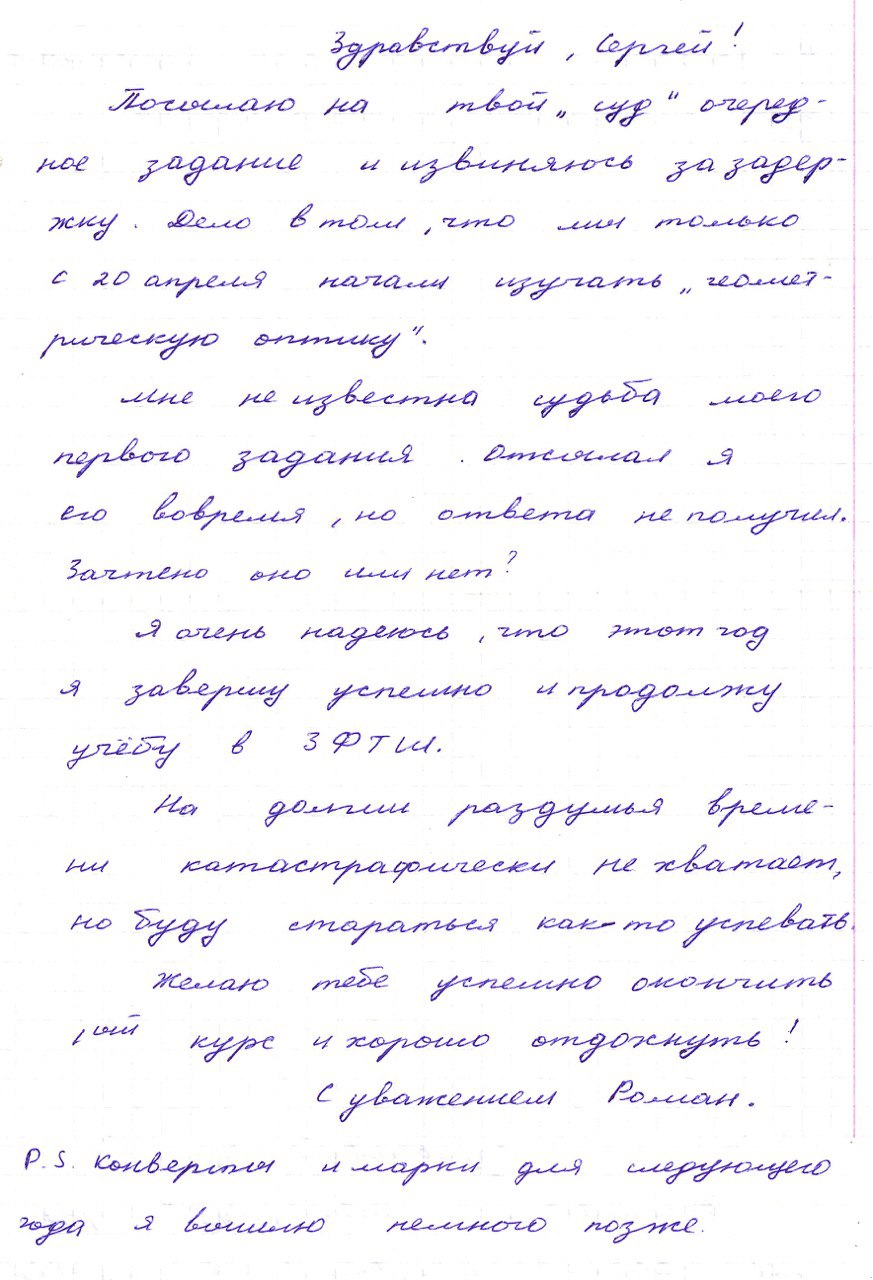 Здравствуй, Сергей!
Посылаю на твой „суд" очеред-
ное задание и извиняюсь за задер-
жку. Дело в том, что мы только
с 20 апреля начали изучать „геомет-
рическую оптику".
Мне не известна судьба моего
первого задания. Отсылал я
его вовремя, но ответа не получил.
Зачтено оно или нет?
Я очень надеюсь, что этот год
я завершу успешно и продолжу
учёбу в ЗФТШ.
На долгии раздумья време-
ни катастрафически не хватает,
но буду стараться как-то успевать.
Желаю тебе успешно окончить
1ый курс и хорошо отдохнуть!
С уважением Роман.
P.S. Конверты и марки для следующего
года я вышлю немного позже.